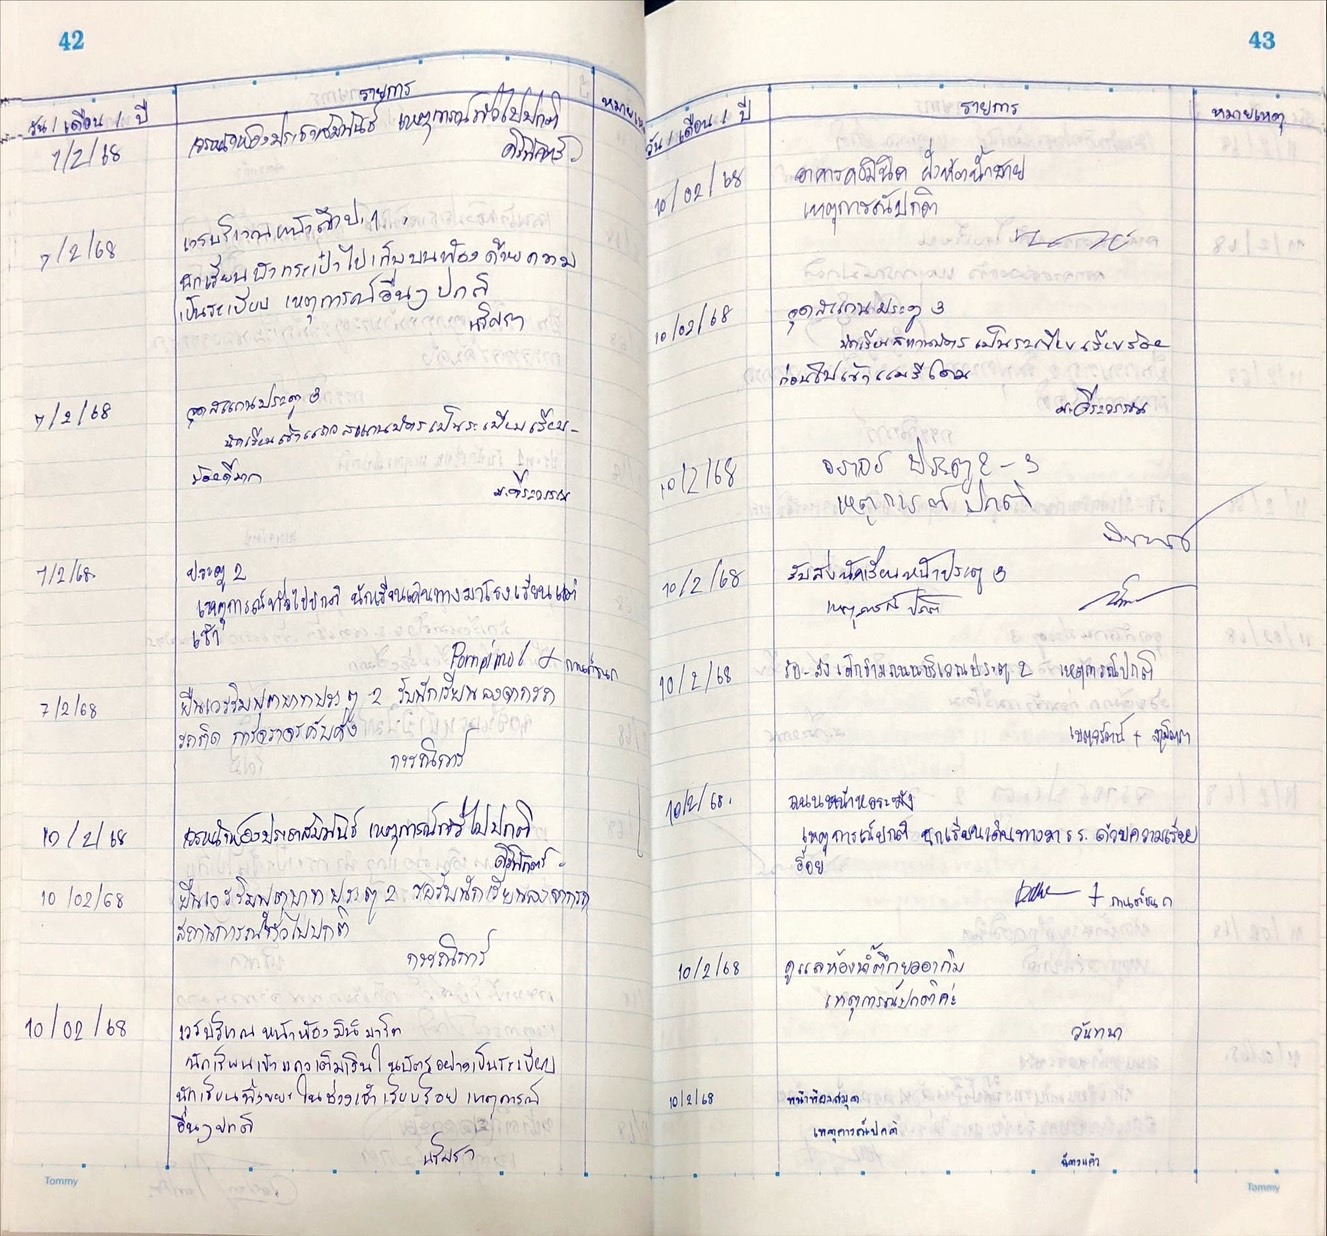 42
วัน / เดือน / ปี
รายการ
หมายเหตุ
7/2/68
เวรหน้าห้องประชาสัมพันธ์ เหตุการณ์ทั่วไปปกติ
7/2/68
เวรบริเวณหน้าตึก ป.1
นักเรียนนำกระเป๋าไปเก็บบนห้องด้วยความ
เป็นระเบียบ เหตุการณ์อื่นๆ ปกติ
7/2/68
จุดสแกนประตู 3
นักเรียนเข้าแถวสแกนบัตรเป็นระเบียบเรียบ-
ร้อยดีมาก
ม.ธีรวรรณ
7/2/68
ประตู 2
เหตุการณ์ทั่วไปปกติ นักเรียนเดินทางมาโรงเรียนแต่
เช้า
+ กานต์ชนก
7/2/68
ยืนเวรริมฟุตบาทประตู 2 รับนักเรียนลงจากรถ
รถติด การจราจรคับคั่ง
กรรณิการ์
10/2/68
เวรหน้าห้องประชาสัมพันธ์ เหตุการณ์ทั่วไปปกติ
10/02/68
ยืนเวรริมฟุตบาทประตู 2 รอรับนักเรียนลงจากรถ
สถานการณ์ทั่วไปปกติ
กรรณิการ์
10/02/68
เวรบริเวณหน้าห้องมินิมาร์ท
นักเรียนเข้าแถวเติมเงินในบัตรอย่างเป็นระเบียบ
นักเรียนทิ้งขยะในช่วงเช้าเรียบร้อย เหตุการณ์
อื่นๆ ปกติ
Tommy
43
วัน / เดือน / ปี
รายการ
หมายเหตุ
10/02/68
อาคารคอมินิค ฝั่งห้องน้ำชาย
เหตุการณ์ปกติ
10/02/68
จุดสแกนประตู 3
นักเรียนสแกนบัตรเป็นระเบียบเรียบร้อย
ก่อนไปเข้าแถวที่โดม
ม.ธีรวรรณ
10/2/68
จราจร ประตู 2-3
เหตุการณ์ ปกติ
10/2/68
รับส่งนักเรียนหน้าประตู 3
เหตุการณ์ ปกติ
10/2/68
รับ-ส่ง เด็กข้ามถนนบริเวณประตู 2 เหตุการณ์ปกติ
10/2/68.
ถนนหน้าหอระฆัง
เหตุการณ์ปกติ นักเรียนเดินทางมา ร.ร. ด้วยความเรียบ
ร้อย
+ กานต์ชนก
10/2/68
ดูแลห้องน้ำตึกยออากิม
เหตุการณ์ปกติค่ะ
วันทนา
10/2/68
หน้าห้องสมุด
เหตุการณ์ปกติ
ฉัตรแก้ว
Tommy